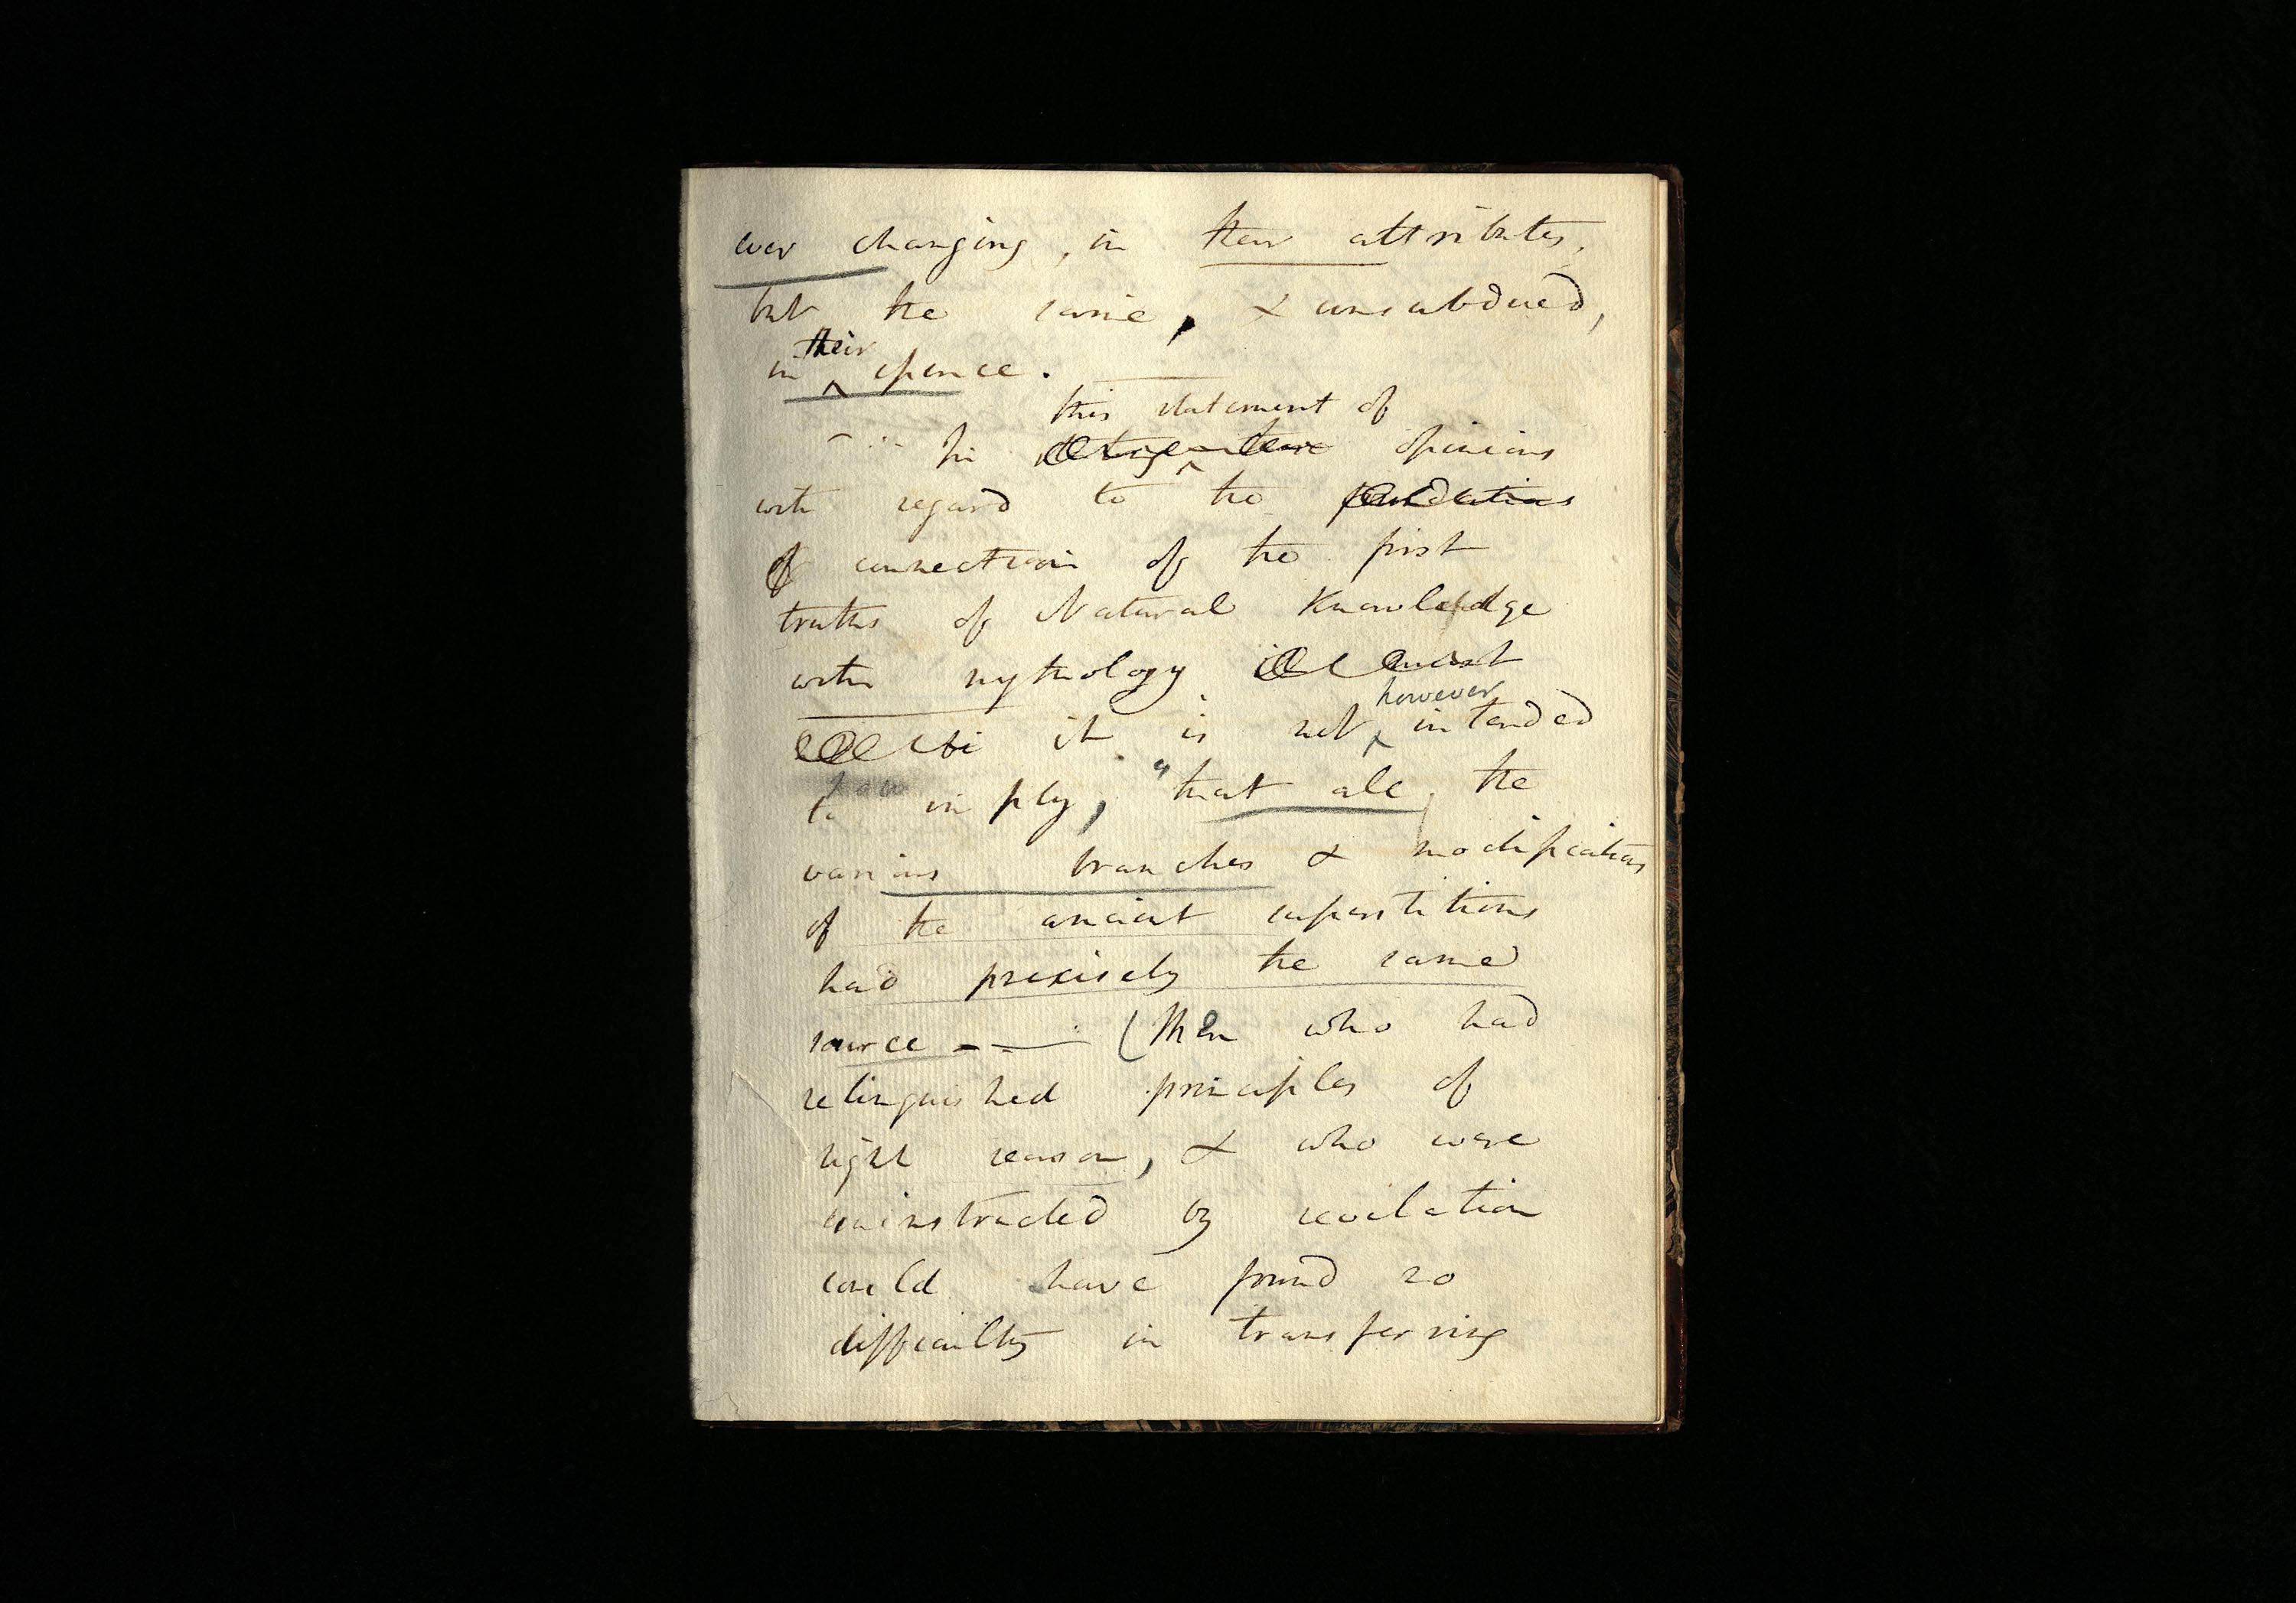 ever changing, in their attributes,
but the same, & unsubdued,
in their essence. —
this statement of
In opinions
with regard to the foundations
of connection of the first
truths of Natural Knowledge
with mythology
it is not however intended
to imply, "that all the
various branches & modifications
of the ancient superstitions
had precisely the same
source — — (Men who had
relinquished principles of
right reason, & who were
uninstructed by revelation
could have found no
difficulty in transferring